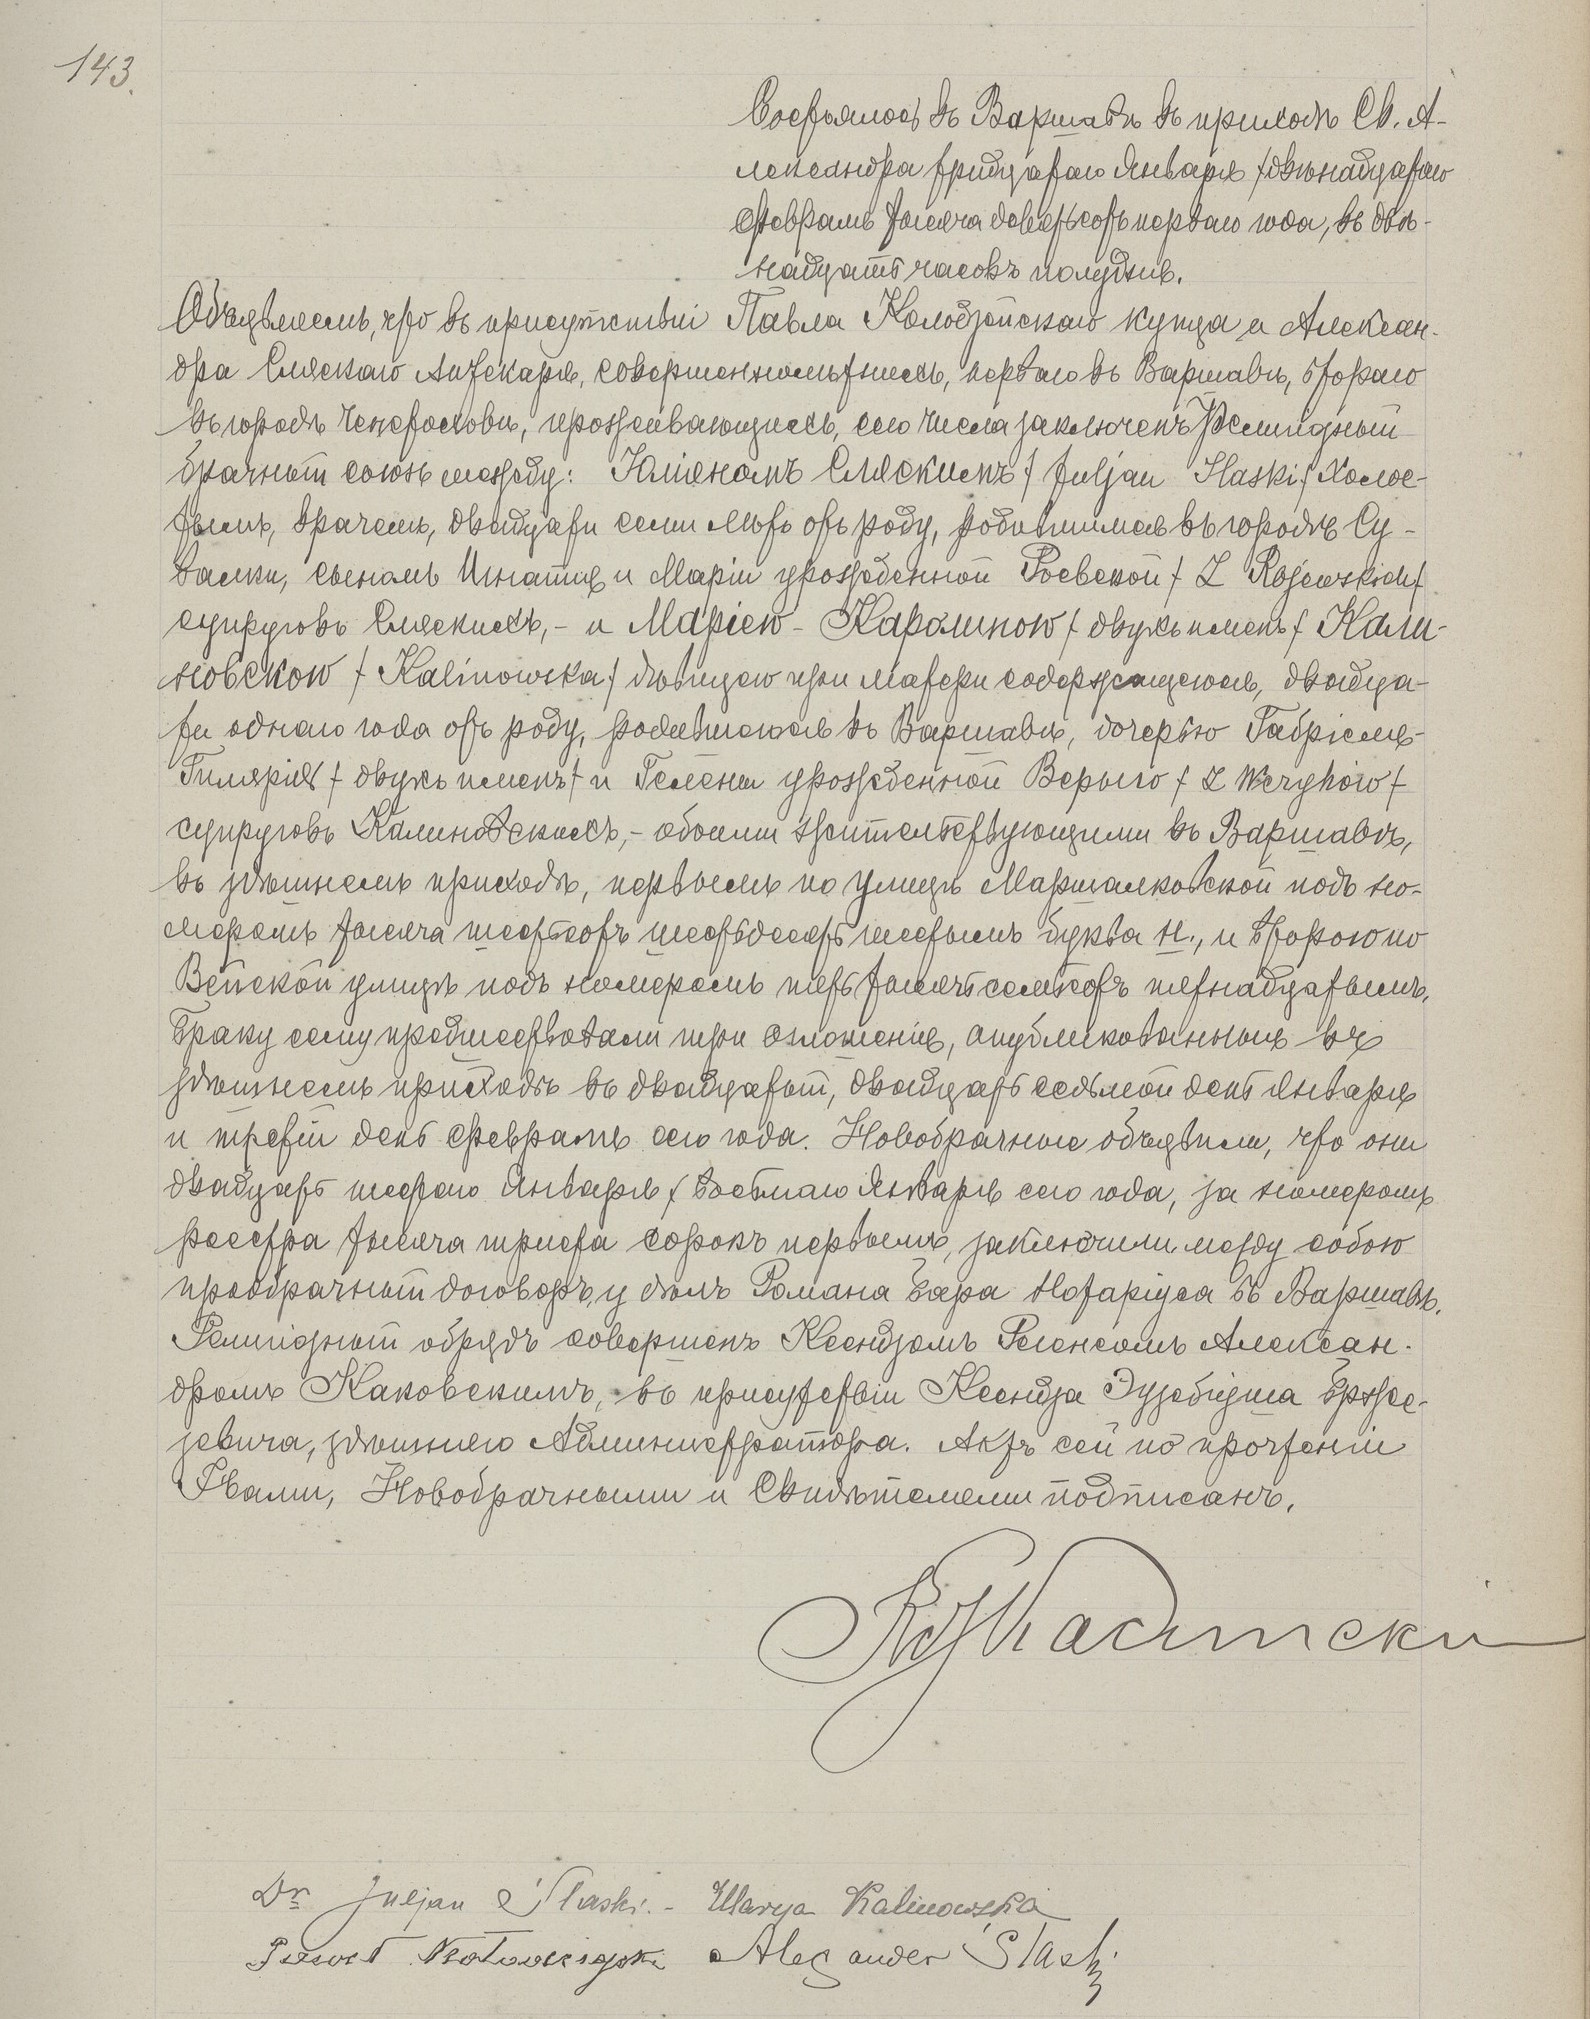 143.
Состоялось въ Варшавѣ въ приходѣ Св. А-
лександра тридцатаго Января / двѣнадцатаго
Февраля тысяча девятьсотъ перваго года, въ двѣ-
надцать часовъ полудня.
Объявляемъ, что въ присутствіи Павла Колодзѣйскаго купца и Алексан-
дра Сляскаго Аптекаря, совершеннолѣтнихъ, перваго въ Варшавѣ, втораго
въ городѣ Ченстоховѣ, проживающихъ, сего числа заключенъ Религіозный
брачный союзъ между: Юліаномъ Сляскимъ / Juljan Slaski / Холос-
тымъ, врачемъ, двадцати семи лѣтъ отъ роду, родившимся въ городѣ Су-
валки, сыномъ Игнатія и Маріи урожденной Роевской / Z Rojewskich /
супруговъ Сляскихъ, - и Маріею - Каролиною / двухъ именъ / Кали-
новскою / Kalinowska / дѣвицею при матери содержащеюся, двадца-
ти однаго года отъ роду, родившеюся въ Варшавѣ, дочерью Габріеля-
Гилярія / двухъ именъ / и Гелены урожденной Верыго / Z Weryhów /
супруговъ Калиновскихъ, - обоими жительствующими въ Варшавѣ,
въ здѣшнемъ приходѣ, первымъ по улицѣ Маршалковской подъ но-
меромъ тысяча шестьсотъ шестьдесятъ шестымъ буква Н., и второю по
Вейской улицѣ подъ номеромъ пять тысячъ семьсотъ пятнадцатымъ.
Браку сему предшествовали три оглашенія, опубликованныя въ
здѣшнемъ приходѣ въ двадцатый, двадцать седьмой день Января
и третій день Февраля сего года. Новобрачные объявили, что они
двадцать шестаго Января / восьмаго Января сего года, за номеромъ
реестра тысяча триста сорокъ первымъ, заключили между собою
предбрачный договоръ, у дѣлъ Романа Бара Нотаріуса въ Варшавѣ.
Религіозный обрядъ совершенъ Ксендзомъ Регенсомъ Алексан-
дромъ Каковскимъ, въ присутствіи Ксендза Эузебіуша Бржее-
зевича, здѣшняго Администратора. Актъ сей по прочтеніи
Нами, Новобрачными и Свидѣтелями подписанъ.
Dr Juljan Slaski. - Marya Kalinowska
Alexander Slaski